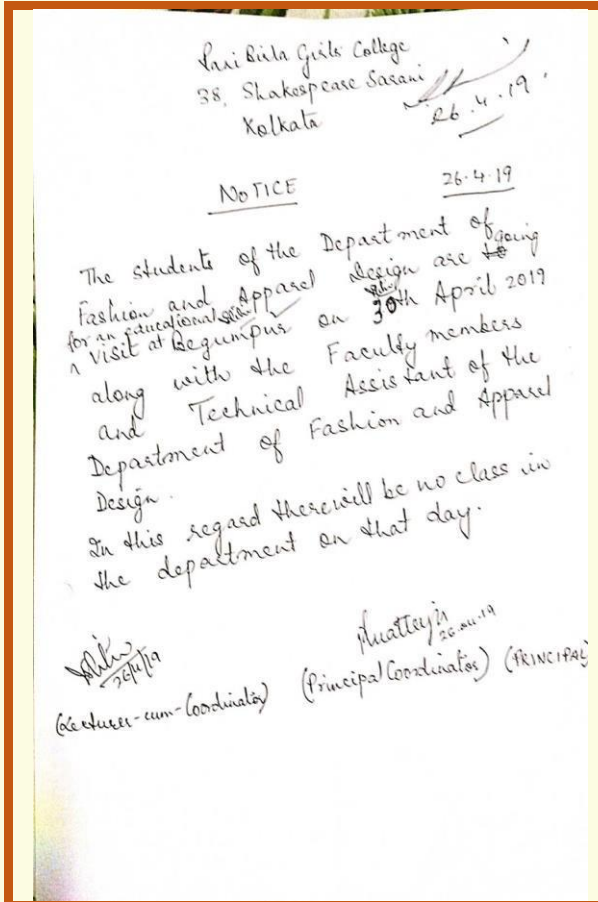 Rani Birla Girls College
38, Shakespeare Sarani
Kolkata
26.4.19
NOTICE
26.4.19
The students of the Department of
Fashion and Apparel Design are going
for an educational
visit at Begumpur on 30th April 2019
along with the Faculty members
and Technical Assistant of the
Department of Fashion and Apparel
Design.
In this regard there will be no class in
the department on that day.
26/4/19
26.04.19
(Lecturer-cum-Coordinator) (Principal Coordinator) (PRINCIPAL)